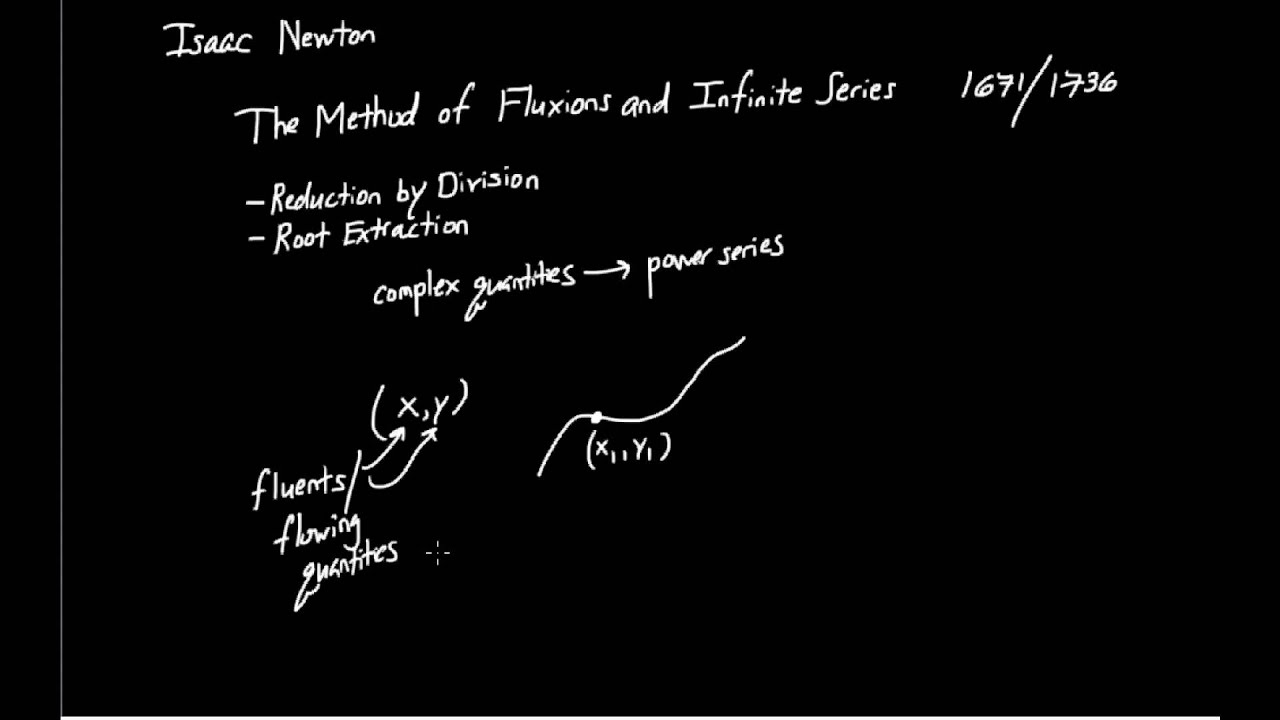 Isaac Newton
The Method of Fluxions and Infinite Series 1671/1736
- Reduction by Division
- Root Extraction
complex quantities → power series
(x,y)
(x₁,y₁)
fluents/
flowing
quantities